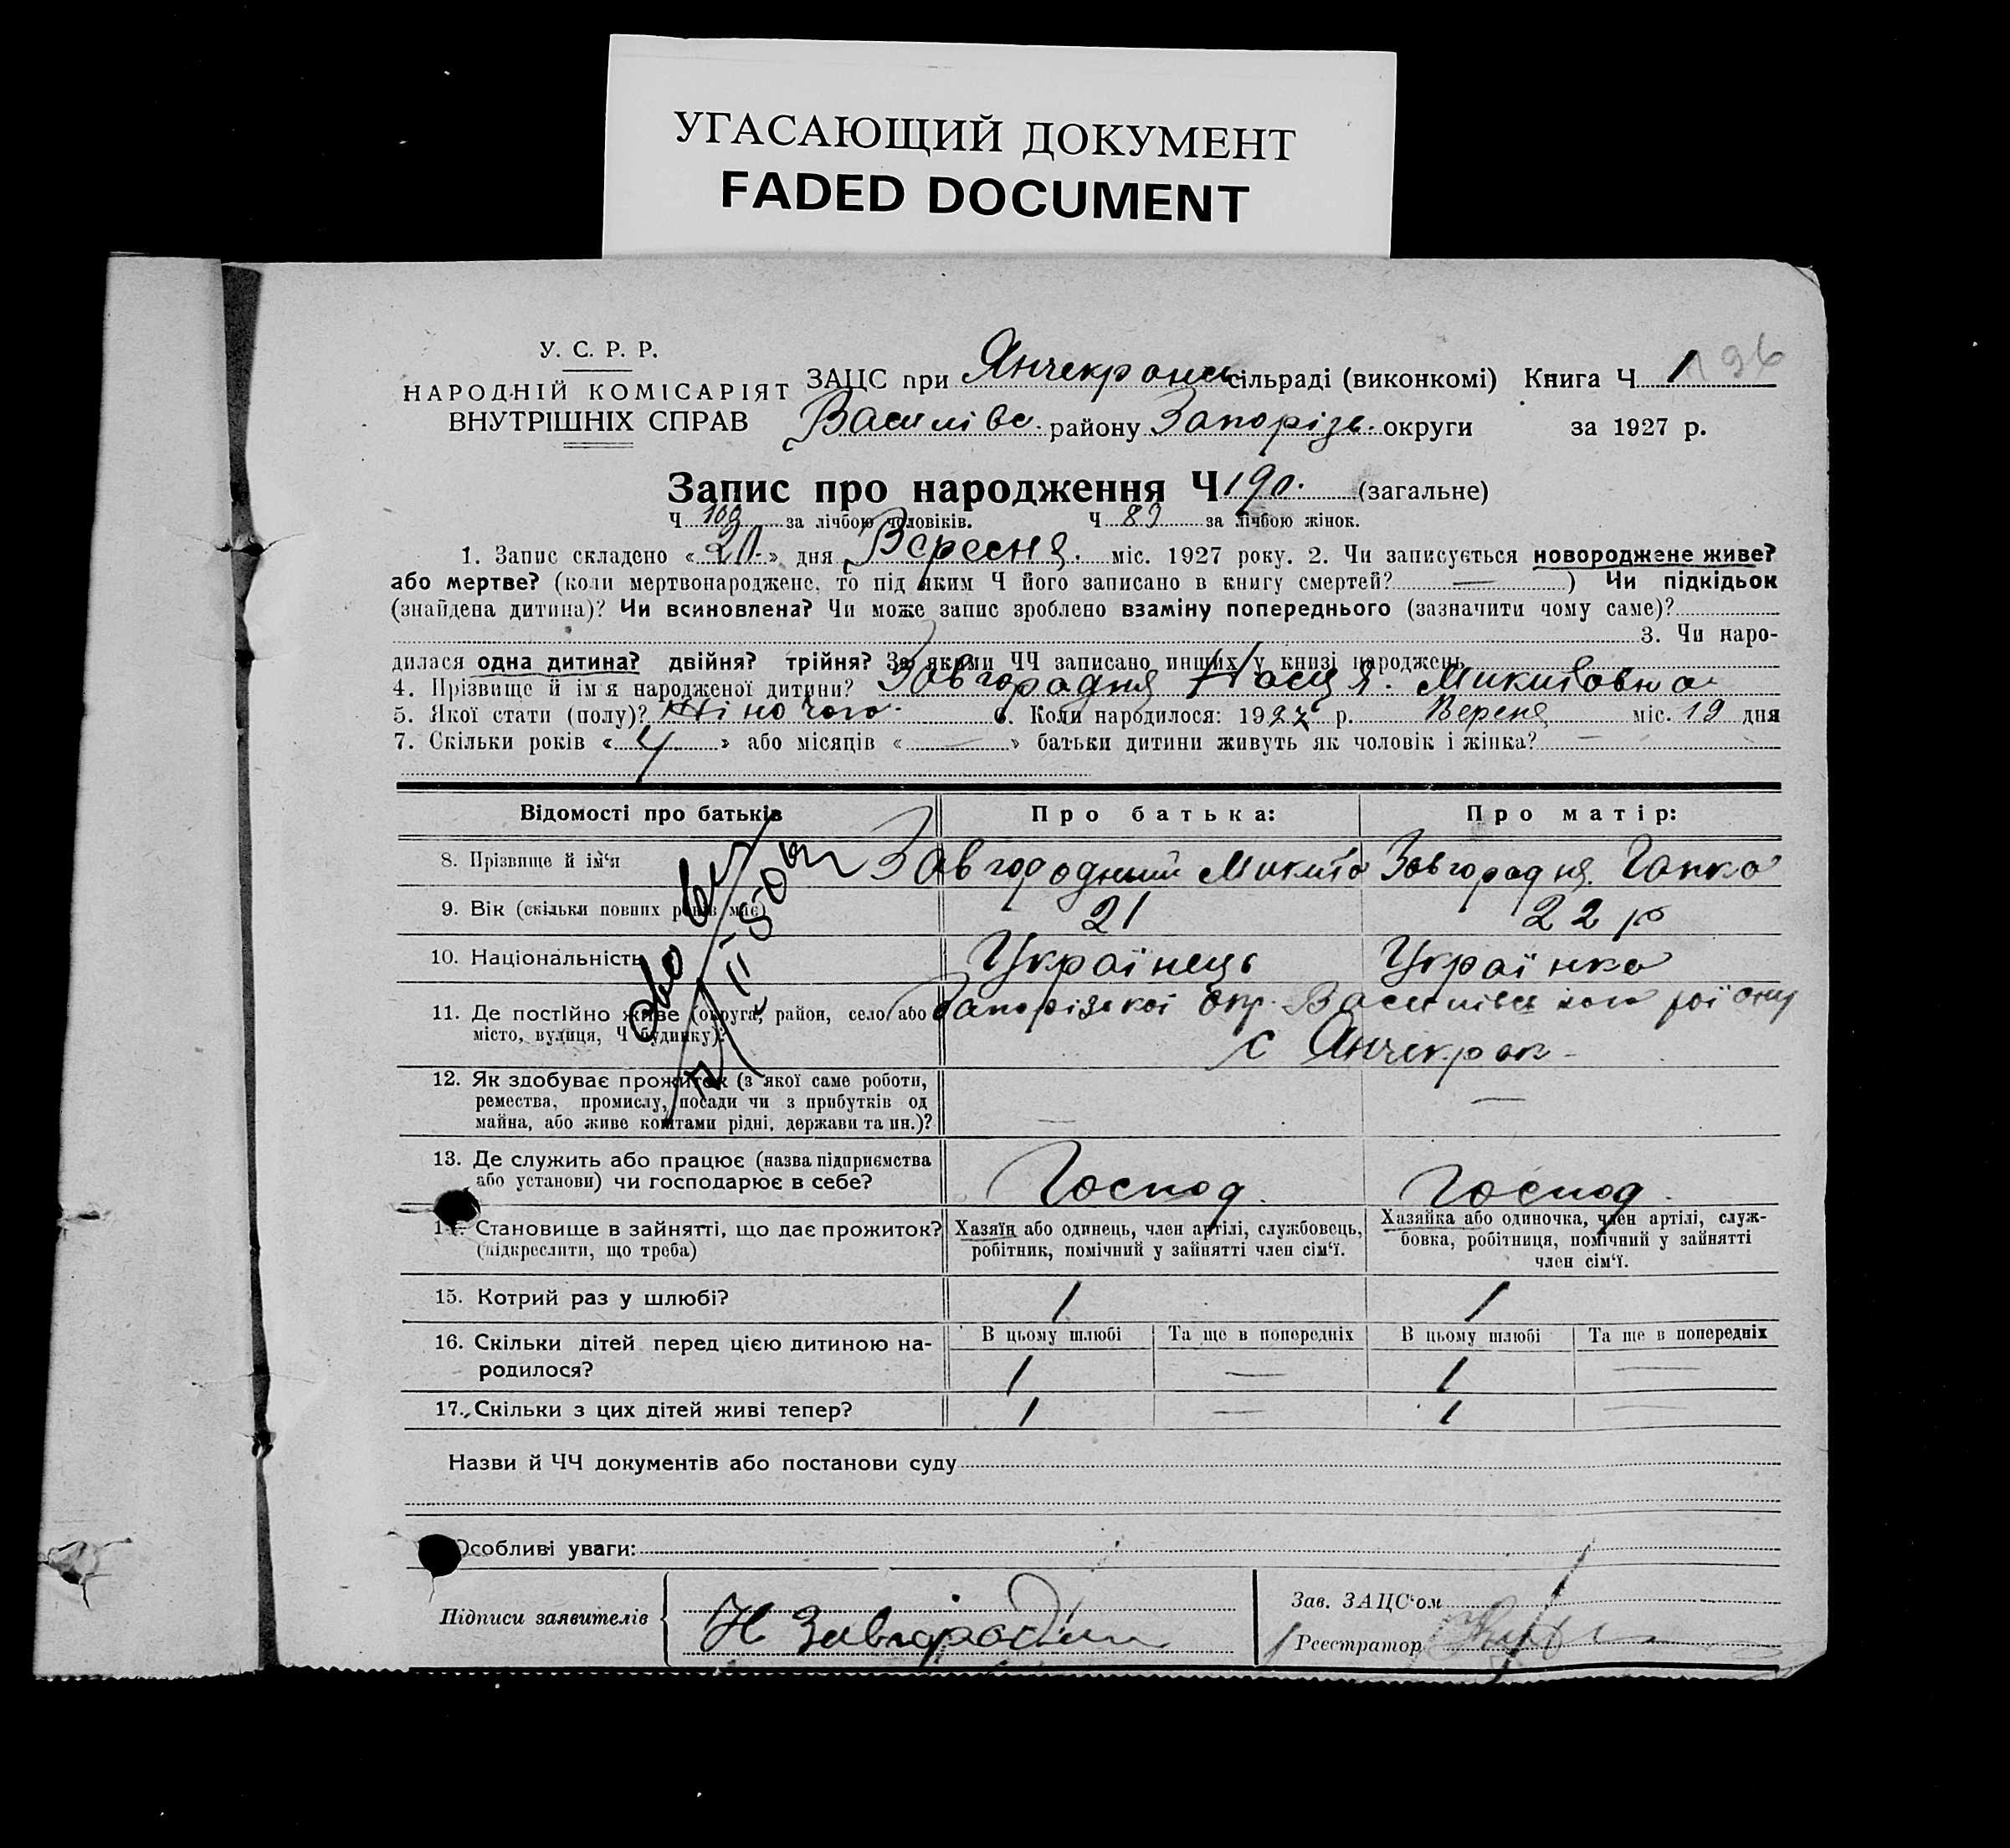 УГАСАЮЩИЙ ДОКУМЕНТ
FADED DOCUMENT
196
У. С. Р. Р.
НАРОДНІЙ КОМІСАРІЯТ
ВНУТРІШНІХ СПРАВ
ЗАЦС при Янчекранськ сільраді (виконкомі) Книга Ч 1
Василівс. району Запорізь. округи за 1927 р.
Запис про народження Ч 190. (загальне)
Ч 109 за лічбою чоловіків. Ч 89 за лічбою жінок.
1. Запис складено «20» дня Вересня. міс. 1927 року. 2. Чи записується новороджене живе?
або мертве? (коли мертвонароджене, то під яким Ч його записано в книгу смертей? — ) Чи підкідьок
(знайдена дитина)? Чи всиновлена? Чи може запис зроблено взаміну попереднього (зазначити чому саме)?
3. Чи наро-
дилася одна дитина? двійня? трійня? За якими ЧЧ записано инших у книзі народжень
4. Прізвище й ім'я народженої дитини? Завгородня Настя. Микитовна
5. Якої стати (полу)? Жіночого. 6. Коли народилося: 1927 р. Вересня міс. 19 дня
7. Скільки років «4» або місяців «—» батьки дитини живуть як чоловік і жінка? —
Відомості про батьків Про батька: Про матір:
8. Прізвище й ім'я Завгородний Микита Завгородня Гапка
9. Вік (скільки повних років має) 21 22 р
10. Національність Українець Українка
11. Де постійно живе (округа, район, село або Запорізької Окр. Василівського району
місто, вулиця, Ч будинку)? с Янчекрак
12. Як здобуває прожиток (з якої саме роботи,
ремества, промислу, посади чи з прибутків од
майна, або живе коштами рідні, держави та ин.)? — —
13. Де служить або працює (назва підприємства
або установи) чи господарює в себе? Господ. Господ.
14. Становище в зайнятті, що дає прожиток? (підкреслити, що треба)
Хазяїн або одинець, член артілі, службовець,
робітник, помічний у зайнятті член сім'ї.
Хазяйка або одиночка, член артілі, служ-
бовка, робітниця, помічний у зайнятті
член сім'ї.
15. Котрий раз у шлюбі? 1 1
В цьому шлюбі Та ще в попередніх В цьому шлюбі Та ще в попередніх
16. Скільки дітей перед цією дитиною на-
родилося? 1 — 1 —
17. Скільки з цих дітей живі тепер? 1 — 1 —
Назви й ЧЧ документів або постанови суду
Особливі уваги:
Підписи заявителів Н Завгородни
Зав. ЗАЦС'ом
Реєстратор